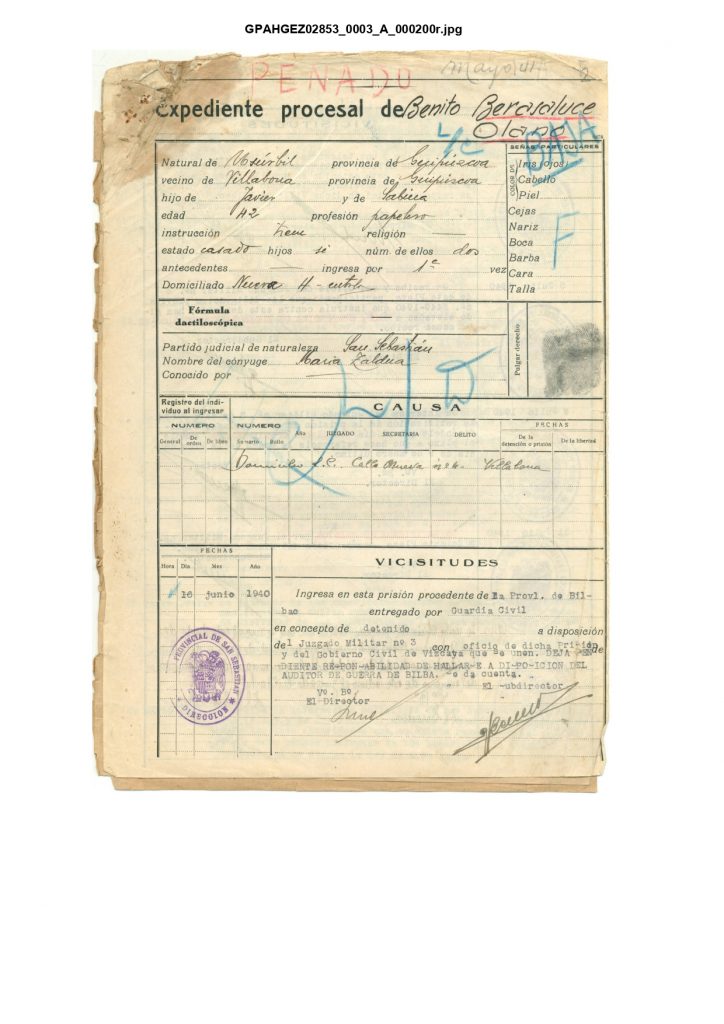 GPAHGEZ02853_0003_A_000200r.jpg
PENADO
Mayo 41
Expediente procesal de Benito Berasaluce
Olano
L/C
BAJA
SEÑAS PARTICULARES
Natural de Usúrbil provincia de Guipúzcoa
vecino de Villabona provincia de Guipúzcoa
hijo de Javier y de Sabina
edad 42 profesión papelero
instrucción tiene religión —
estado casado hijos sí núm. de ellos dos
antecedentes — ingresa por 1ª vez
Domiciliado Nueva 4-
COLOR DE
Iris (ojos)
Cabello
Piel
Cejas
Nariz
Boca
Barba
Cara
Talla
F
Fórmula
dactiloscópica —
Partido judicial de naturaleza San Sebastián
Nombre del cónyuge María Zaldua
Conocido por —
Pulgar derecho
Registro del indi-
viduo al ingresar
CAUSA
NUMERO
NUMERO
Año JUZGADO SECRETARIA DELITO
FECHAS
General De orden De libro Sumario Rollo
De la detención o prisión De la libertad
Domicilio Calle Nueva Villabona
FECHAS
Hora Día Mes Año
VICISITUDES
16 junio 1940
Ingresa en esta prisión procedente de la Provl. de Bil-
bao entregado por Guardia Civil
en concepto de detenido a disposición
del Juzgado Militar nº 3 con oficio de dicha Prisión
y del Gobierno Civil de Vizcaya que se unen. DEJA PEN de
DIENTE RE PON ABILIDAD DE HALLAR E A DI PO ICION DEL
AUDITOR DE GUERRA DE BILBA. e da cuenta.
Vº. Bº. El ubdirector
El Director
PROVINCIAL DE SAN SEBASTIAN
DIRECCION